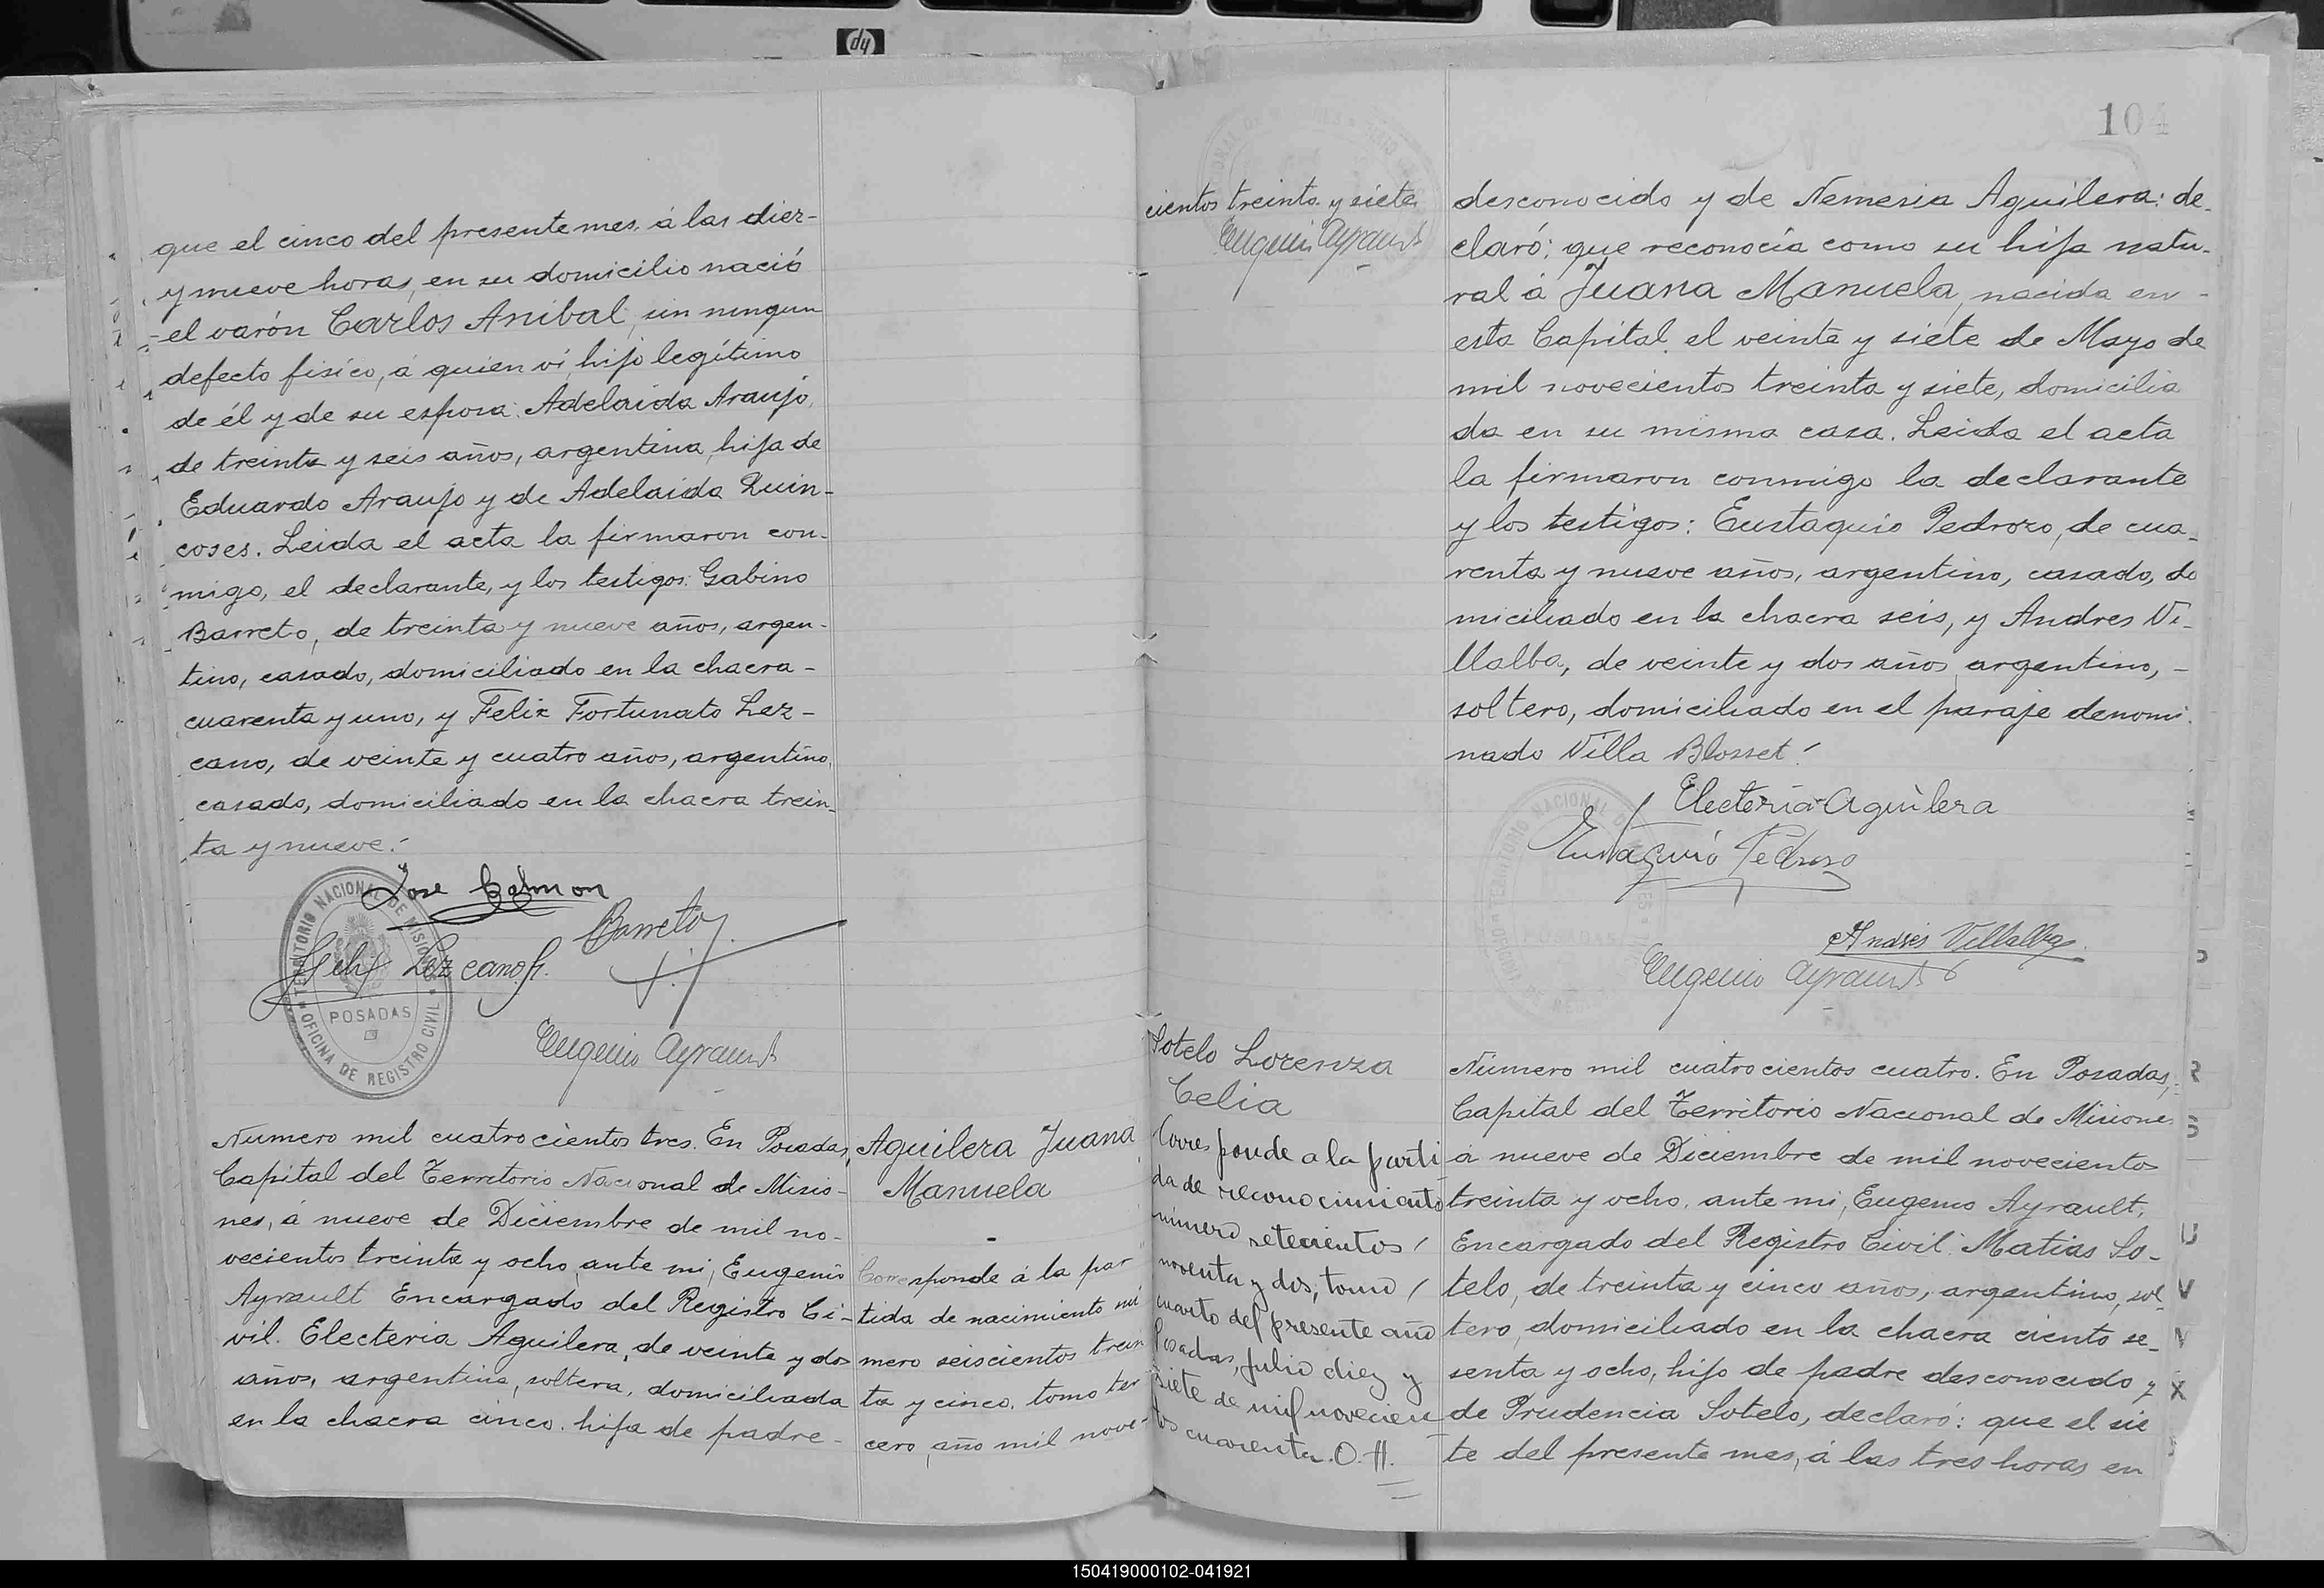 que el cinco del presente mes, á las diez-
y nueve horas, en su domicilio nació
el varón Carlos Anibal, sin ningun
defecto fisico, á quien vi, hijo legítimo
de él y de su esposa: Adelaida Araujo,
de treinta y seis años, argentina, hija de
Eduardo Araujo y de Adelaida Quin-
coses. Leida el acta la firmaron con-
migo, el declarante, y los testigos: Gabino
Barreto, de treinta y nueve años, argen-
tino, casado, domiciliado en la chacra -
cuarenta y uno, y Felix Fortunato Lez-
cano, de veinte y cuatro años, argentino,
casado, domiciliado en la chacra trein-
ta y nueve.
Jose
Barreto
Lezcano
TERRITORIO NACIONAL DE MISIONES
POSADAS
OFICINA DE REGISTRO CIVIL
Eugenio Ayrault
Numero mil cuatrocientos tres. En Posadas,
Capital del Territorio Nacional de Misio-
nes, á nueve de Diciembre de mil no-
vecientos treinta y ocho, ante mi, Eugenio
Ayrault Encargado del Registro Ci-
vil. Electeria Aguilera, de veinte y dos
años, argentina, soltera, domiciliada
en la chacra cinco, hija de padre -
Aguilera Juana
Manuela
-
Corresponde á la par
tida de nacimiento nú
mero seiscientos trein
ta y cinco, tomo ter
cero, año mil nove-
cientos treinta y siete
Eugenio Ayrault
104
desconocido y de Nemesia Aguilera: de-
claró: que reconocía como su hija natu-
ral á Juana Manuela, nacida en -
esta Capital el veinte y siete de Mayo de
mil novecientos treinta y siete, domicilia
da en su misma casa. Leida el acta
la firmaron conmigo la declarante
y los testigos: Eustaquio Pedrozo, de cua-
renta y nueve años, argentino, casado, do
miciliado en la chacra seis, y Andres Vi-
llalba, de veinte y dos años, argentino, -
soltero, domiciliado en el paraje denomi-
nado Villa Blosset.
Electeria Aguilera
Eustaquio Pedrozo
Andrés Villalba
Eugenio Ayrault
Sotelo Lorenza
Celia
Corresponde a la parti
da de reconocimiento
número setecientos
noventa y dos, tomo
cuarto del presente año
Posadas, julio diez y
siete de mil novecien-
tos cuarenta. O. H.
Número mil cuatrocientos cuatro. En Posadas,
Capital del Territorio Nacional de Misiones
á nueve de Diciembre de mil novecientos
treinta y ocho, ante mi, Eugenio Ayrault,
Encargado del Registro Civil: Matias So-
telo, de treinta y cinco años, argentino, sol-
tero, domiciliado en la chacra ciento se-
senta y ocho, hijo de padre desconocido y
de Prudencia Sotelo, declaró: que el sie
te del presente mes, á las tres horas en
150419000102-041921